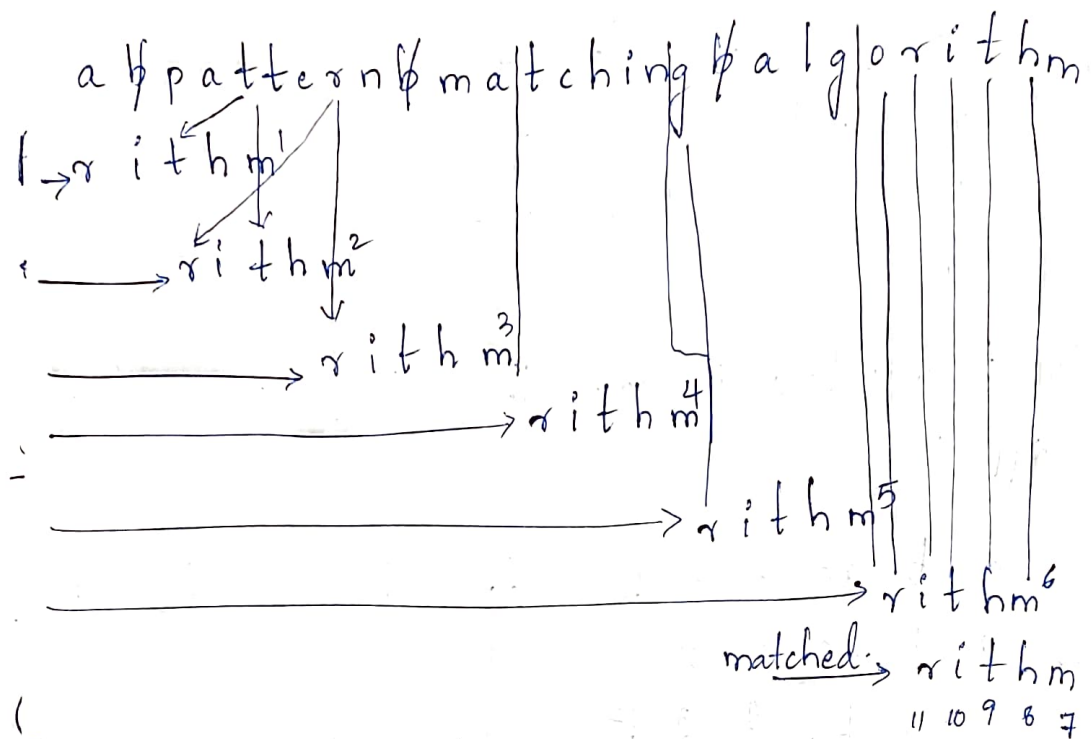 a ƀ p a t t e r n ƀ m a t c h i n g ƀ a l g o r i t h m
r i t h m 1
r i t h m 2
r i t h m 3
r i t h m 4
r i t h m 5
r i t h m 6
matched: r i t h m
11 10 9 8 7